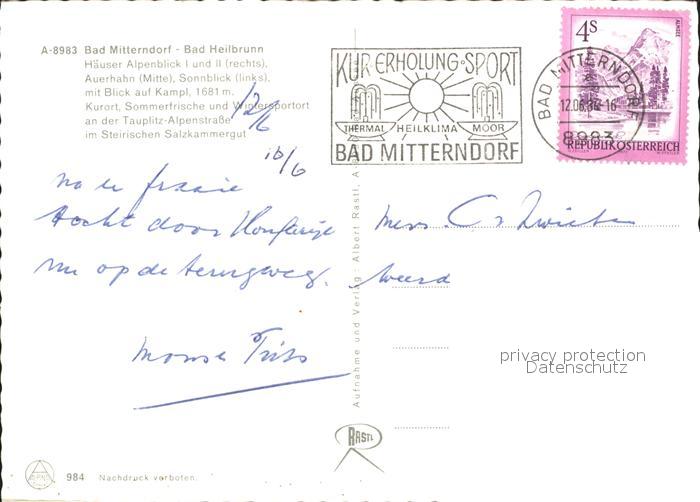 A-8983 Bad Mitterndorf - Bad Heilbrunn
Häuser Alpenblick I und II (rechts),
Auerhahn (Mitte), Sonnblick (links),
mit Blick auf Kampl, 1681 m.
Kurort, Sommerfrische und Wintersportort
an der Tauplitz-Alpenstraße
im Steirischen Salzkammergut
12/6
16/6
KUR·ERHOLUNG·SPORT
THERMAL HEILKLIMA MOOR
BAD MITTERNDORF
BAD MITTERNDORF
12.06.
8983
4S
ALMSEE
REPUBLIK ÖSTERREICH
na een fraaie
tocht door Hongarije
nu op de terugweg.
Aufnahme und Verlag: Albert Rastl,
Weerd
privacy protection
Datenschutz
RASTL
984 Nachdruck verboten.